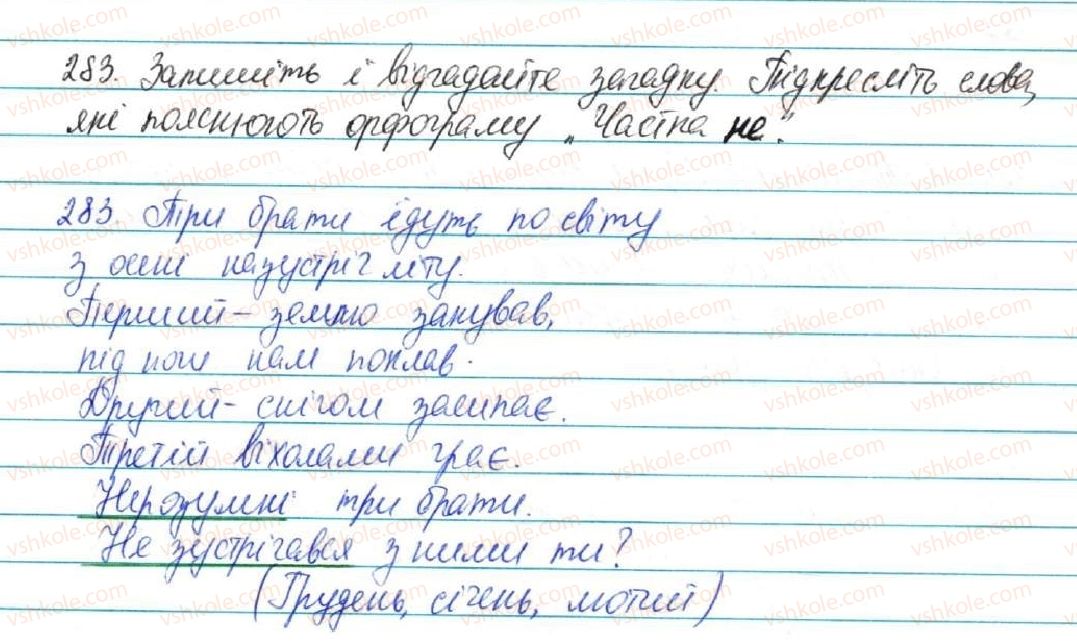 283. Запишіть і відгадайте загадку. Підкресліть слова,
які пояснюють орфограму „Частка не".
283. Три брати ідуть по світу
з осені назустріч літу.
Перший – землю закував,
під ноги нам поклав.
Другий – снігом засипає.
Третій віхолами грає.
Нерозумні три брати.
Не зустрічався з ними ти?
(Грудень, січень, лютий)
vshkole.com